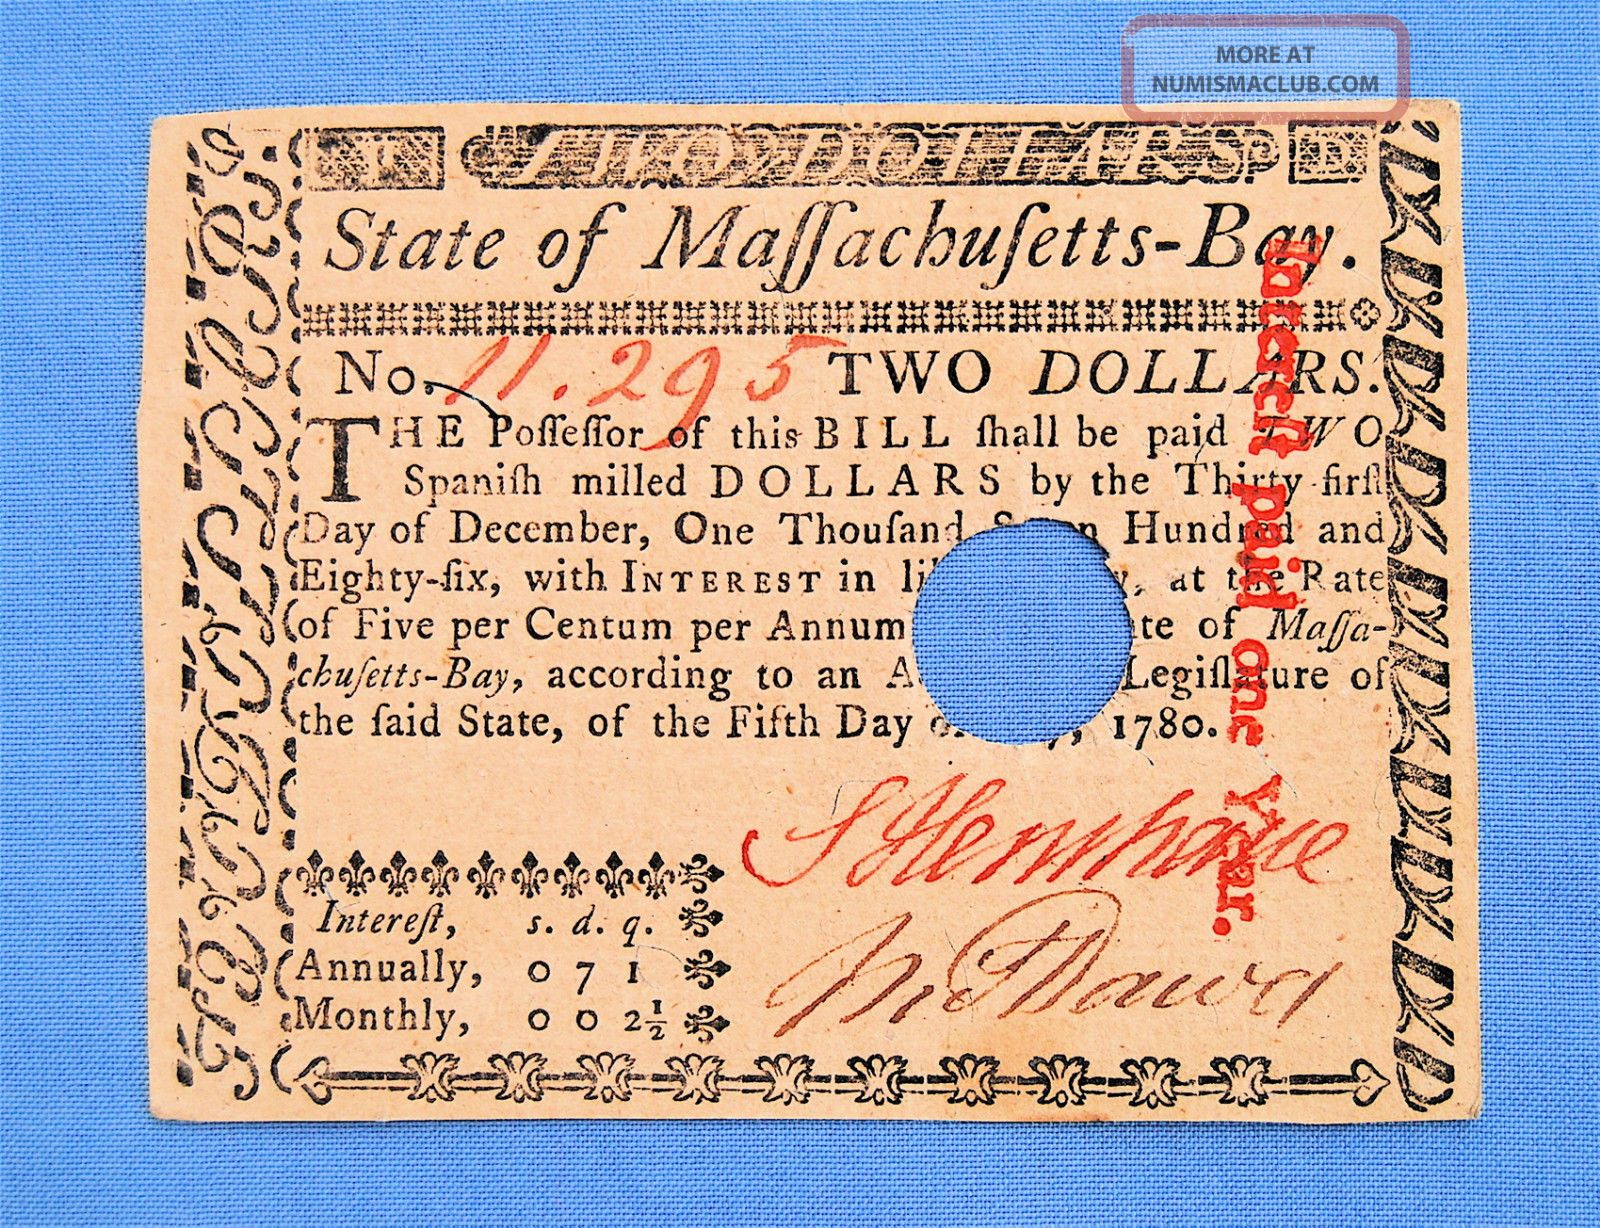 MORE AT
NUMISMACLUB.COM
TWO DOLLARS
State of Maſſachuſetts-Bay.
No. 11.295 TWO DOLLARS.
THE Poſſeſſor of this BILL ſhall be paid TWO
Spaniſh milled DOLLARS by the Thirty-firſt
Day of December, One Thouſand Hundred and
Eighty-ſix, with INTEREST in at the Rate
of Five per Centum per Annum of Maſſa-
chuſetts-Bay, according to an Legiſlature of
the ſaid State, of the Fifth Day 1780.
Intereſt paid one Year.
Intereſt, s. d. q.
Annually, 0 7 1
Monthly, 0 0 2½